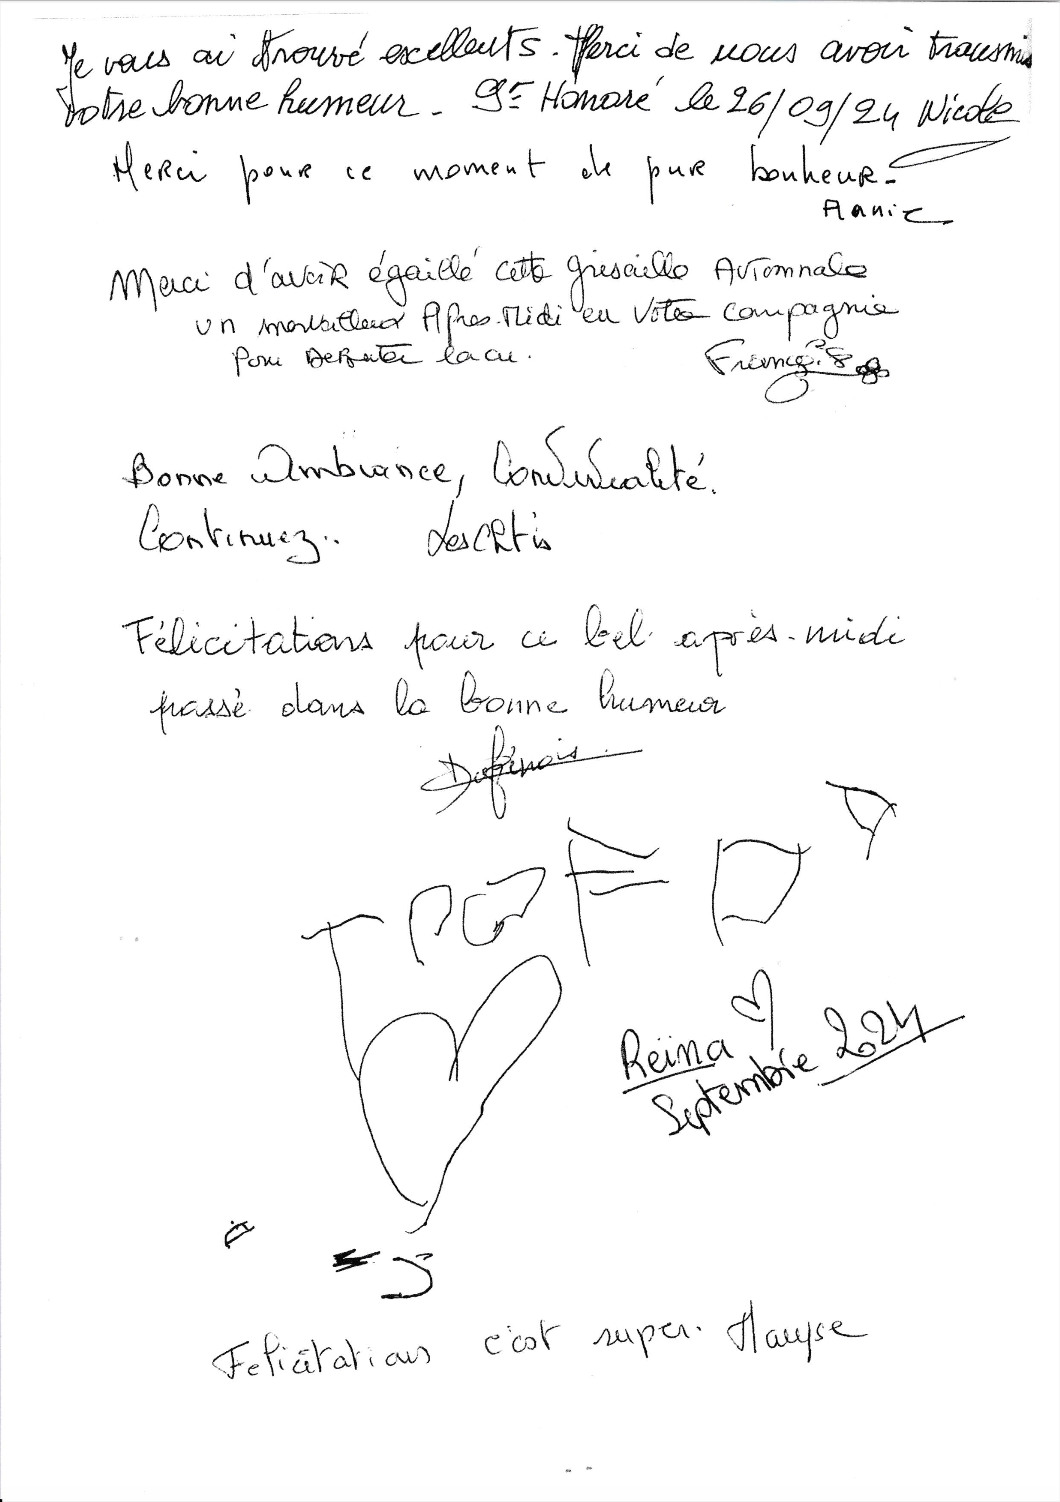 Je vous ai trouvé excellents. Merci de nous avoir transmis
votre bonne humeur. St Honoré le 26/09/24 Nicole
Merci pour ce moment de pur bonheur.
Annie
Merci d'avoir égaillé cette grisaille Automnale
un merveilleux Après-Midi en Votre compagnie
Pour Debuter la cu.
Bonne Ambiance, Convivialité.
Continuez.. Les Chtis
Félicitations pour ce bel après-midi
passé dans la bonne humeur
Reïna
Septembre 2024
Felicitations c'est super.